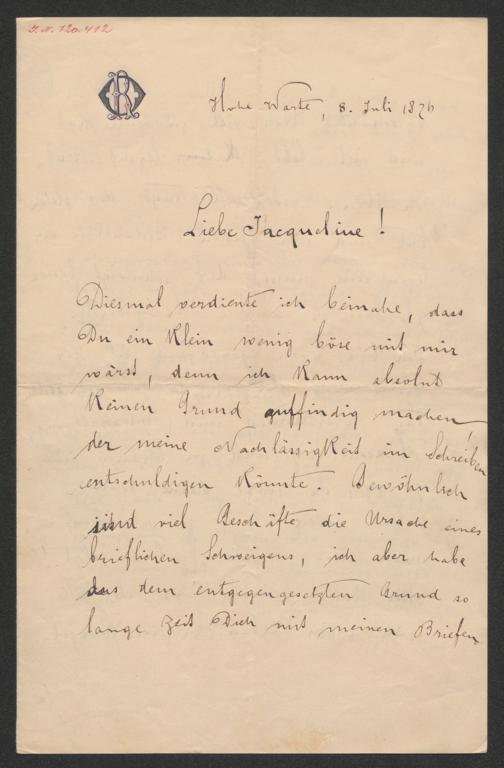 J.N. 120.412
Hohe Warte, 8. Juli 1876
Liebe Jacqueline!
Diesmal verdiente ich beinahe, dass
Du ein klein wenig böse mit mir
wärst, denn ich kann absolut
keinen Grund auffindig machen,
der meine Nachlässigkeit im Schreiben
entschuldigen könnte. Gewöhnlich
sind viel Geschäfte die Ursache eines
brieflichen Schweigens, ich aber habe
aus dem entgegengesetzten Grund so
lange Zeit Dich mit meinen Briefen